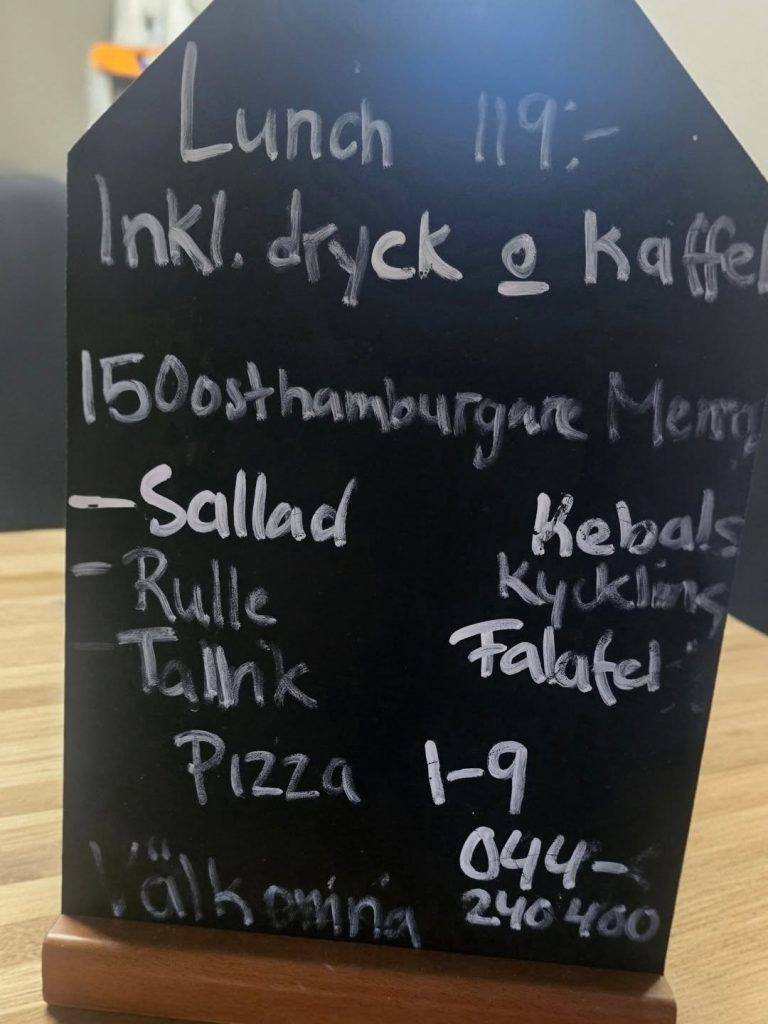 Lunch 119:-
Inkl. dryck o kaffe
150 osthamburgare Meny
- Sallad Kebab
- Rulle Kyckling
- Tallrik Falafel
Pizza 1-9
Välkomna 044-
240 400